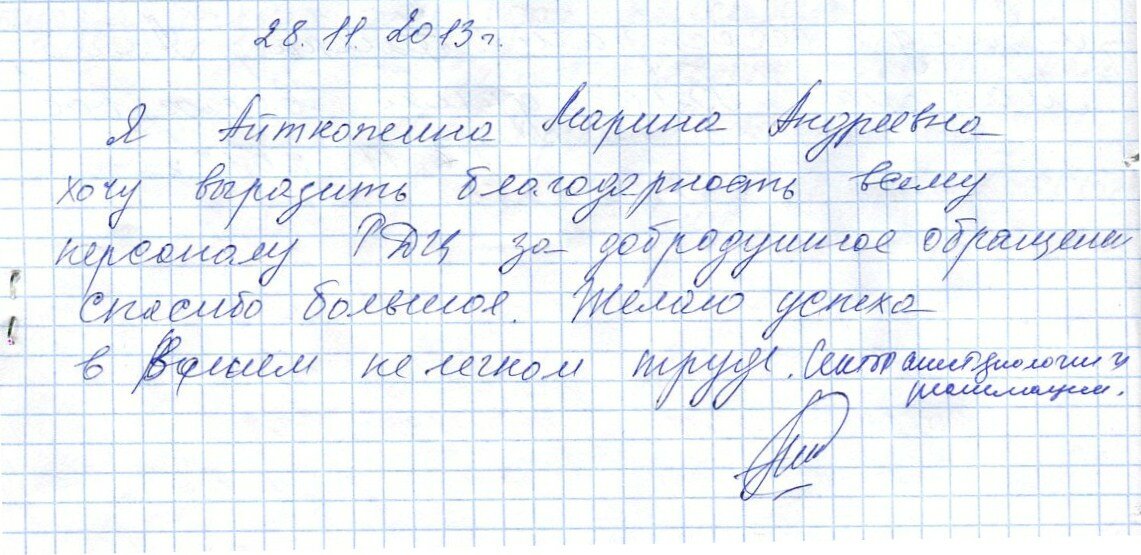 28.11.2013г.
Я Айткожина Марина Андреевна
хочу выразить благодарность всему
персоналу РДЦ за добродушное обращение
спасибо большое. Желаю успеха
в Вашем нелегком труде. Сектор анестезиологии и
реанимации.